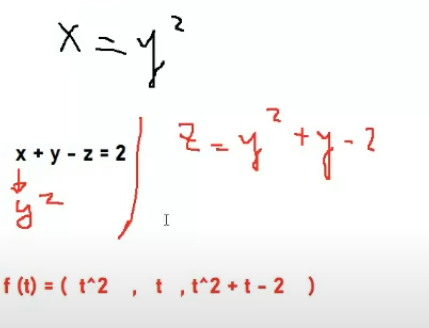 x = y²
x + y - z = 2
z = y² + y - 2
y²
f (t) = ( t^2 , t , t^2 + t - 2 )